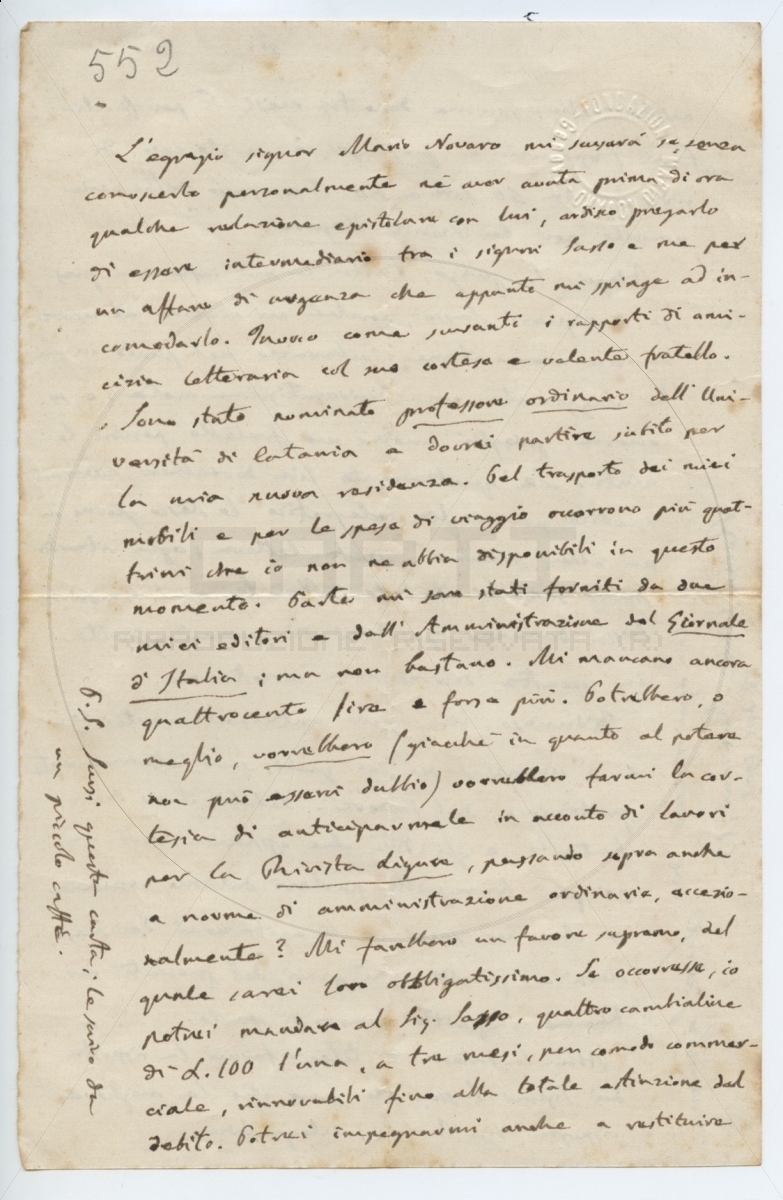 552
L'egregio signor Mario Novaro mi scuserà se, senza
conoscerlo personalmente nè aver avuta prima di ora
qualche relazione epistolare con lui, ardisco pregarlo
di essere intermediario tra i signori Sasso e me per
un affare di urgenza che appunto mi spinge ad in-
comodarlo. Invoco come scusanti i rapporti di ami-
cizia letteraria col suo cortese e valente fratello.
Sono stato nominato professore ordinario dell'Uni-
versità di Catania e dovrei partire subito per
la mia nuova residenza. Pel trasporto dei miei
mobili e per le spese di viaggio occorrono più quat-
trini che io non ne abbia disponibili in questo
momento. Parte mi sono stati forniti da due
miei editori e dall'Amministrazione del Giornale
d'Italia; ma non bastano. Mi mancano ancora
quattrocento lire e forse più. Potrebbero, o
meglio, vorrebbero (giacchè in quanto al potere
non può esserci dubbio) vorrebbero farmi la cor-
tesia di anticiparmele in acconto di lavori
per la Rivista Ligure, passando sopra anche
a norme di amministrazione ordinaria, eccezio-
nalmente? Mi farebbero un favore supremo, del
quale sarei loro obbligatissimo. Se occorresse, io
potrei mandare al Sig. Sasso, quattro cambialine
di L. 100 l'una, a tre mesi, per comodo commer-
ciale, rinnovabili fino alla totale estinzione del
debito. Potrei impegnarmi anche a restituire
P.S. Scusi questa carta; le scrivo da
un piccolo caffè.